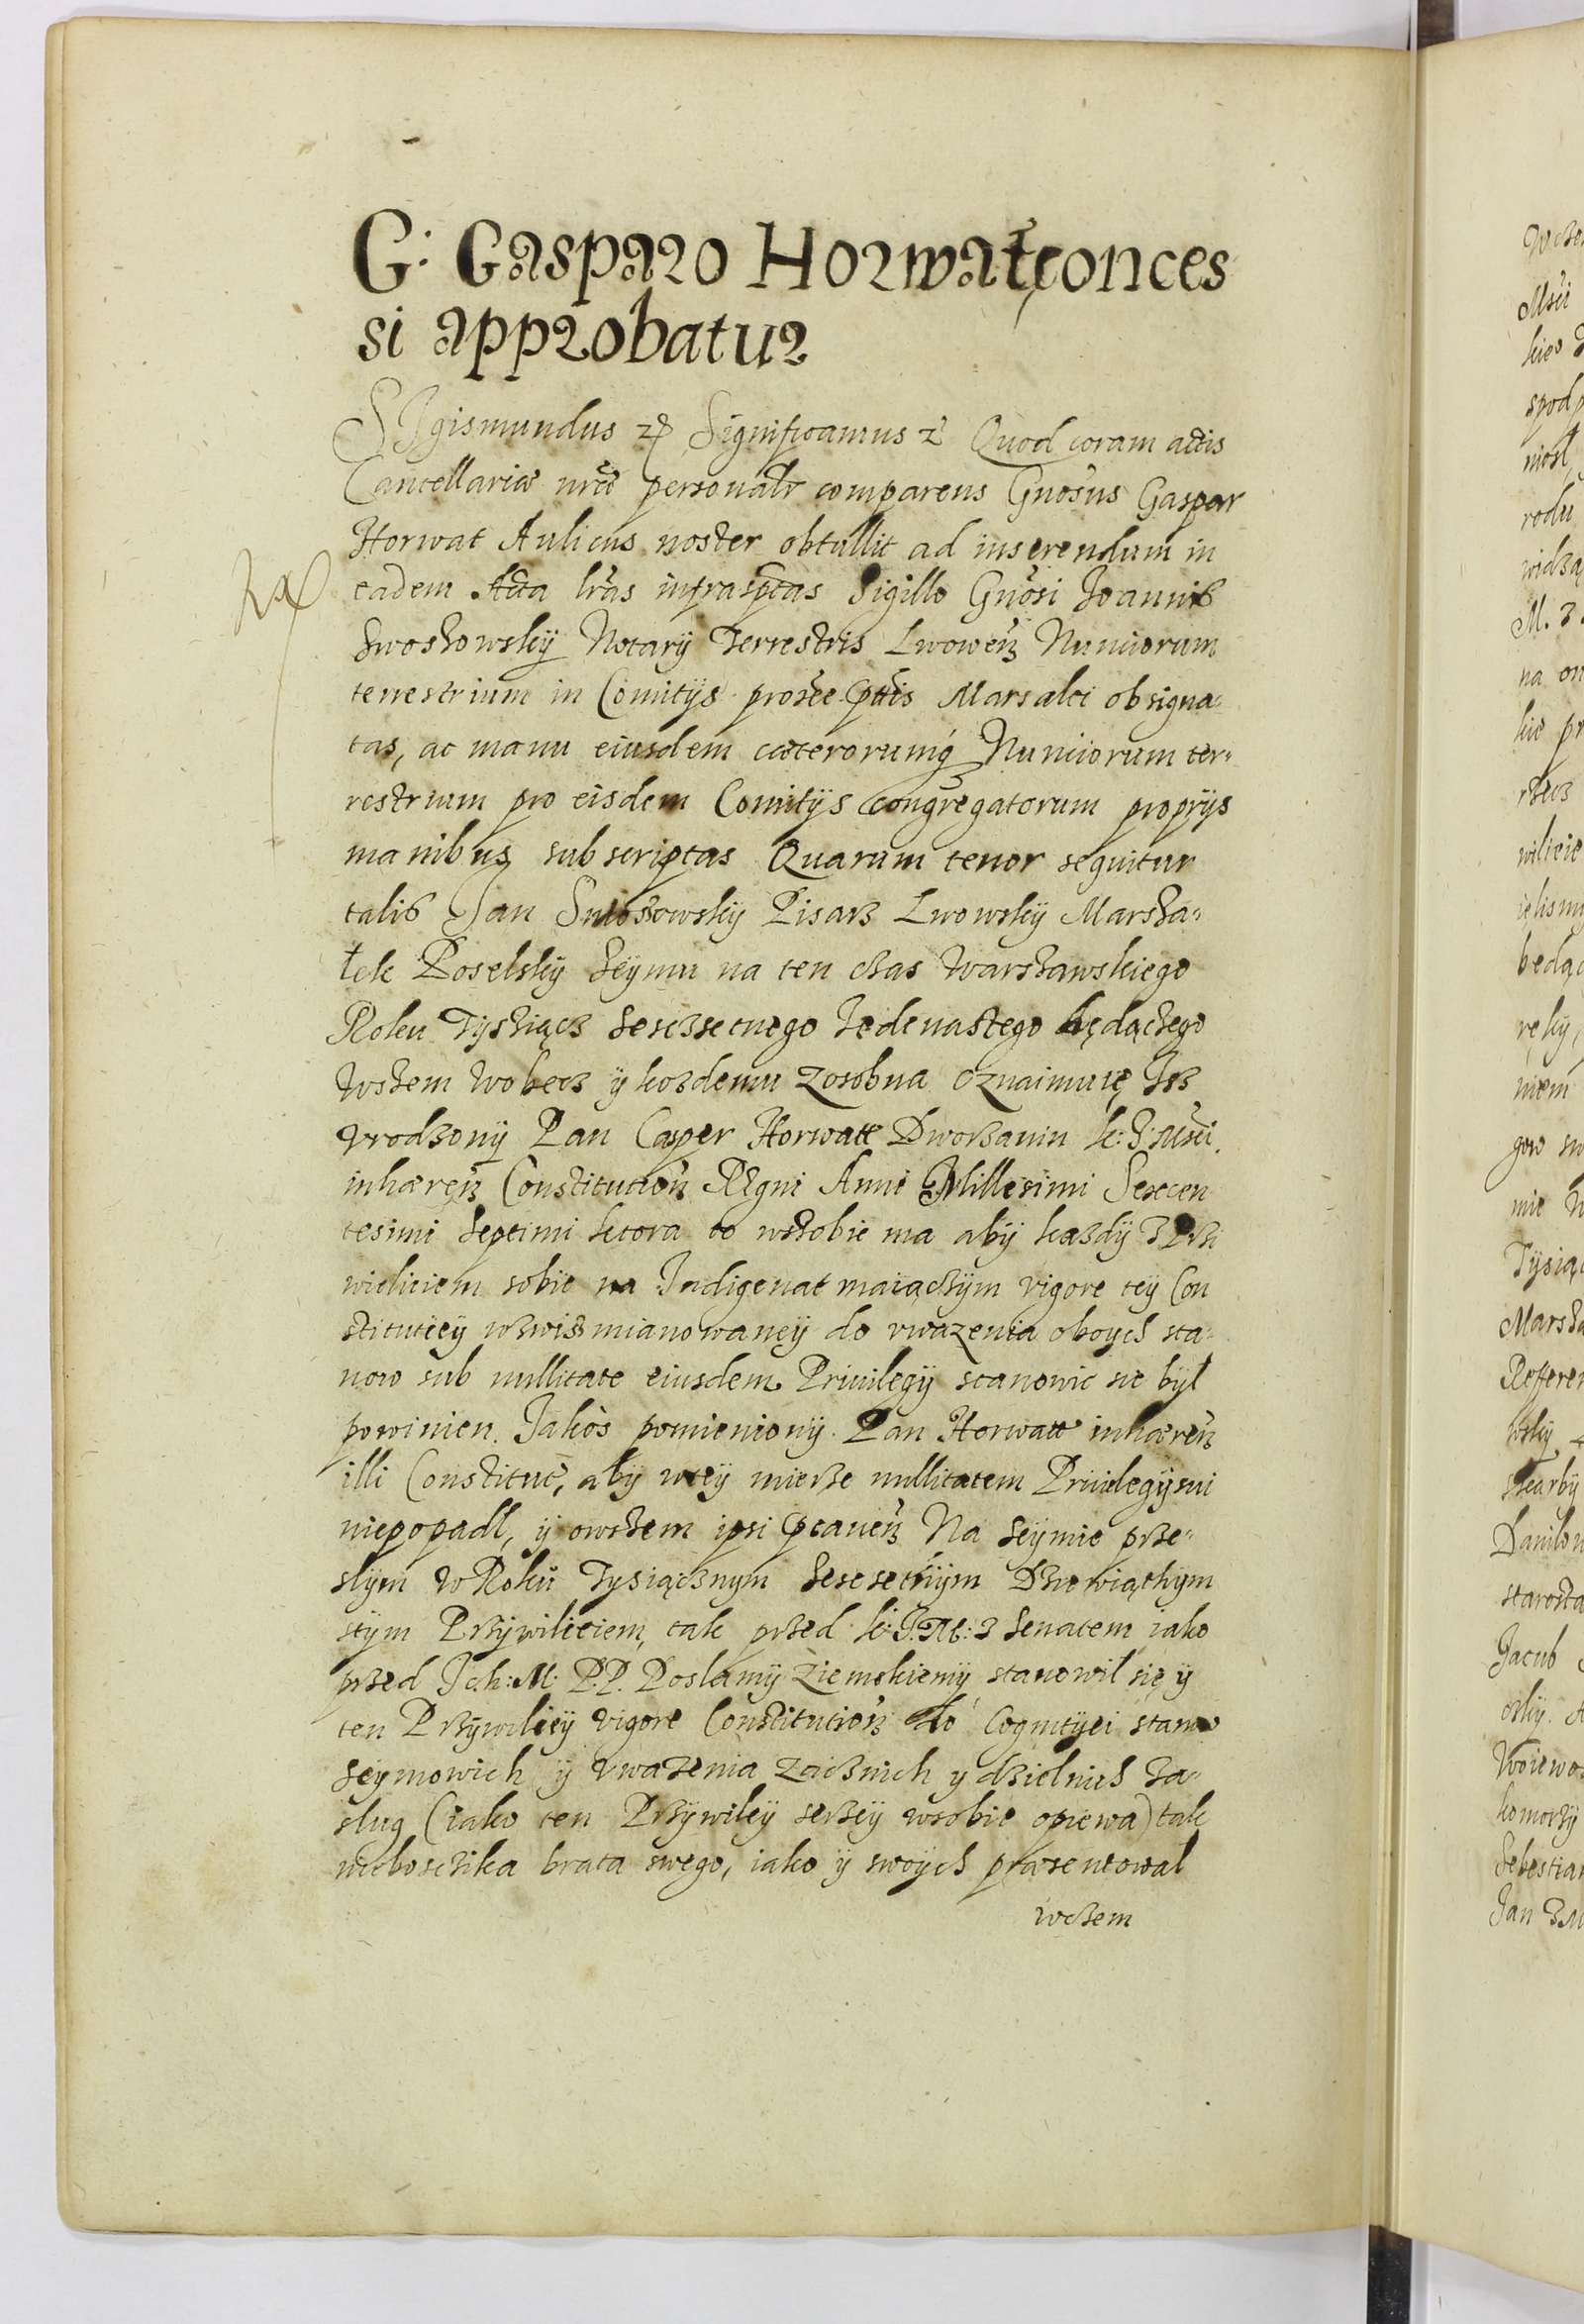 G: Gasparo Horwat conces
si approbatur
SIgismundus etc Significamus etc Quod coram actis
Cancellariæ nræ personalr comparens Gnosus Gaspar
Horwat Aulicus noster obtullit ad inserendum in
eadem Acta lras infrasptas Sigillo Gnosi Joannis
Swoszowsky Notarij Terrestris Lwowen Nunciorum
terrestrium in Comitijs Marsalci obsigna-
tas, ac manu eiusdem cæterorumq Nunciorum ter-
restrium pro eisdem Comitijs congregatorum proprijs
manibus subscriptas Quarum tenor sequitur
talis Jan Swoszowskÿ Pisarz Lwowskÿ Marsza-
łek Poselskÿ Seÿmu na ten czas Warszawskiego
Roku Tÿsziącz Sesczsetnego Jedenastego będączego
Wszem wobecz ÿ kozdemu zosobna oznaimuię Isz
vrodzonÿ Pan Casper Horwatt Dworzanin K: J: Msci.
inhæren Constitution Regni Anni Millesimi Sexcen
tesimi Septimi ktora to wszobie ma abÿ kazdÿ z Przi
wieliciem sobie na Indigenat maiączÿm vigore teÿ Con
stitutieÿ wzwisz mianowaneÿ do vwazenia oboych sta-
now sub nullitate eiusdem Priuilegÿ stanowic sie bÿł
powinien. Jakos pomienionÿ Pan Horwatt inhæren
illi Constitut, abÿ wteÿ mierze nullitatem Priuilegÿ sui
niepopadl, ÿ owszem ipsi præcauen Na Seÿmie prze-
slÿm w Roku Tysiącznym Sescsetnÿm Dziewiąthym
stÿm Przÿwilieiem, tak przed K: J. M: z Senatem iako
przed Ich: M: P.P. Poslamÿ Ziemskiemÿ stanowil się ÿ
ten Przÿwilieÿ vigore Constitution do Cognitÿei stanow
Seÿmowich ÿ vwazenia zacznich y dzielnich Za-
slug (iako ten Przÿwileÿ serzeÿ wsobie opiewa) tak
nieboszczika brata swego, iako ÿ swoÿch præsentowal
wczem